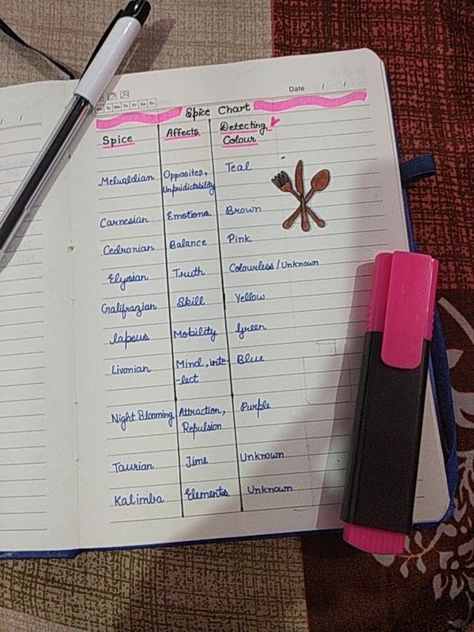 Spice Chart
Date / /
Spice Affects Detecting
Colour
Melualdian Opposites, Teal
Unpridictability
Carnesian Emotions Brown
Cedronian Balance Pink
Elysian Truth Colourless/Unknown
Galifrazian Skill Yellow
Lapsus Mobility Green
Livonian Mind, inte- Blue
-lect
Night Blooming Attraction, Purple
Repulsion
Taurian Time Unknown
Kalimba Elements Unknown